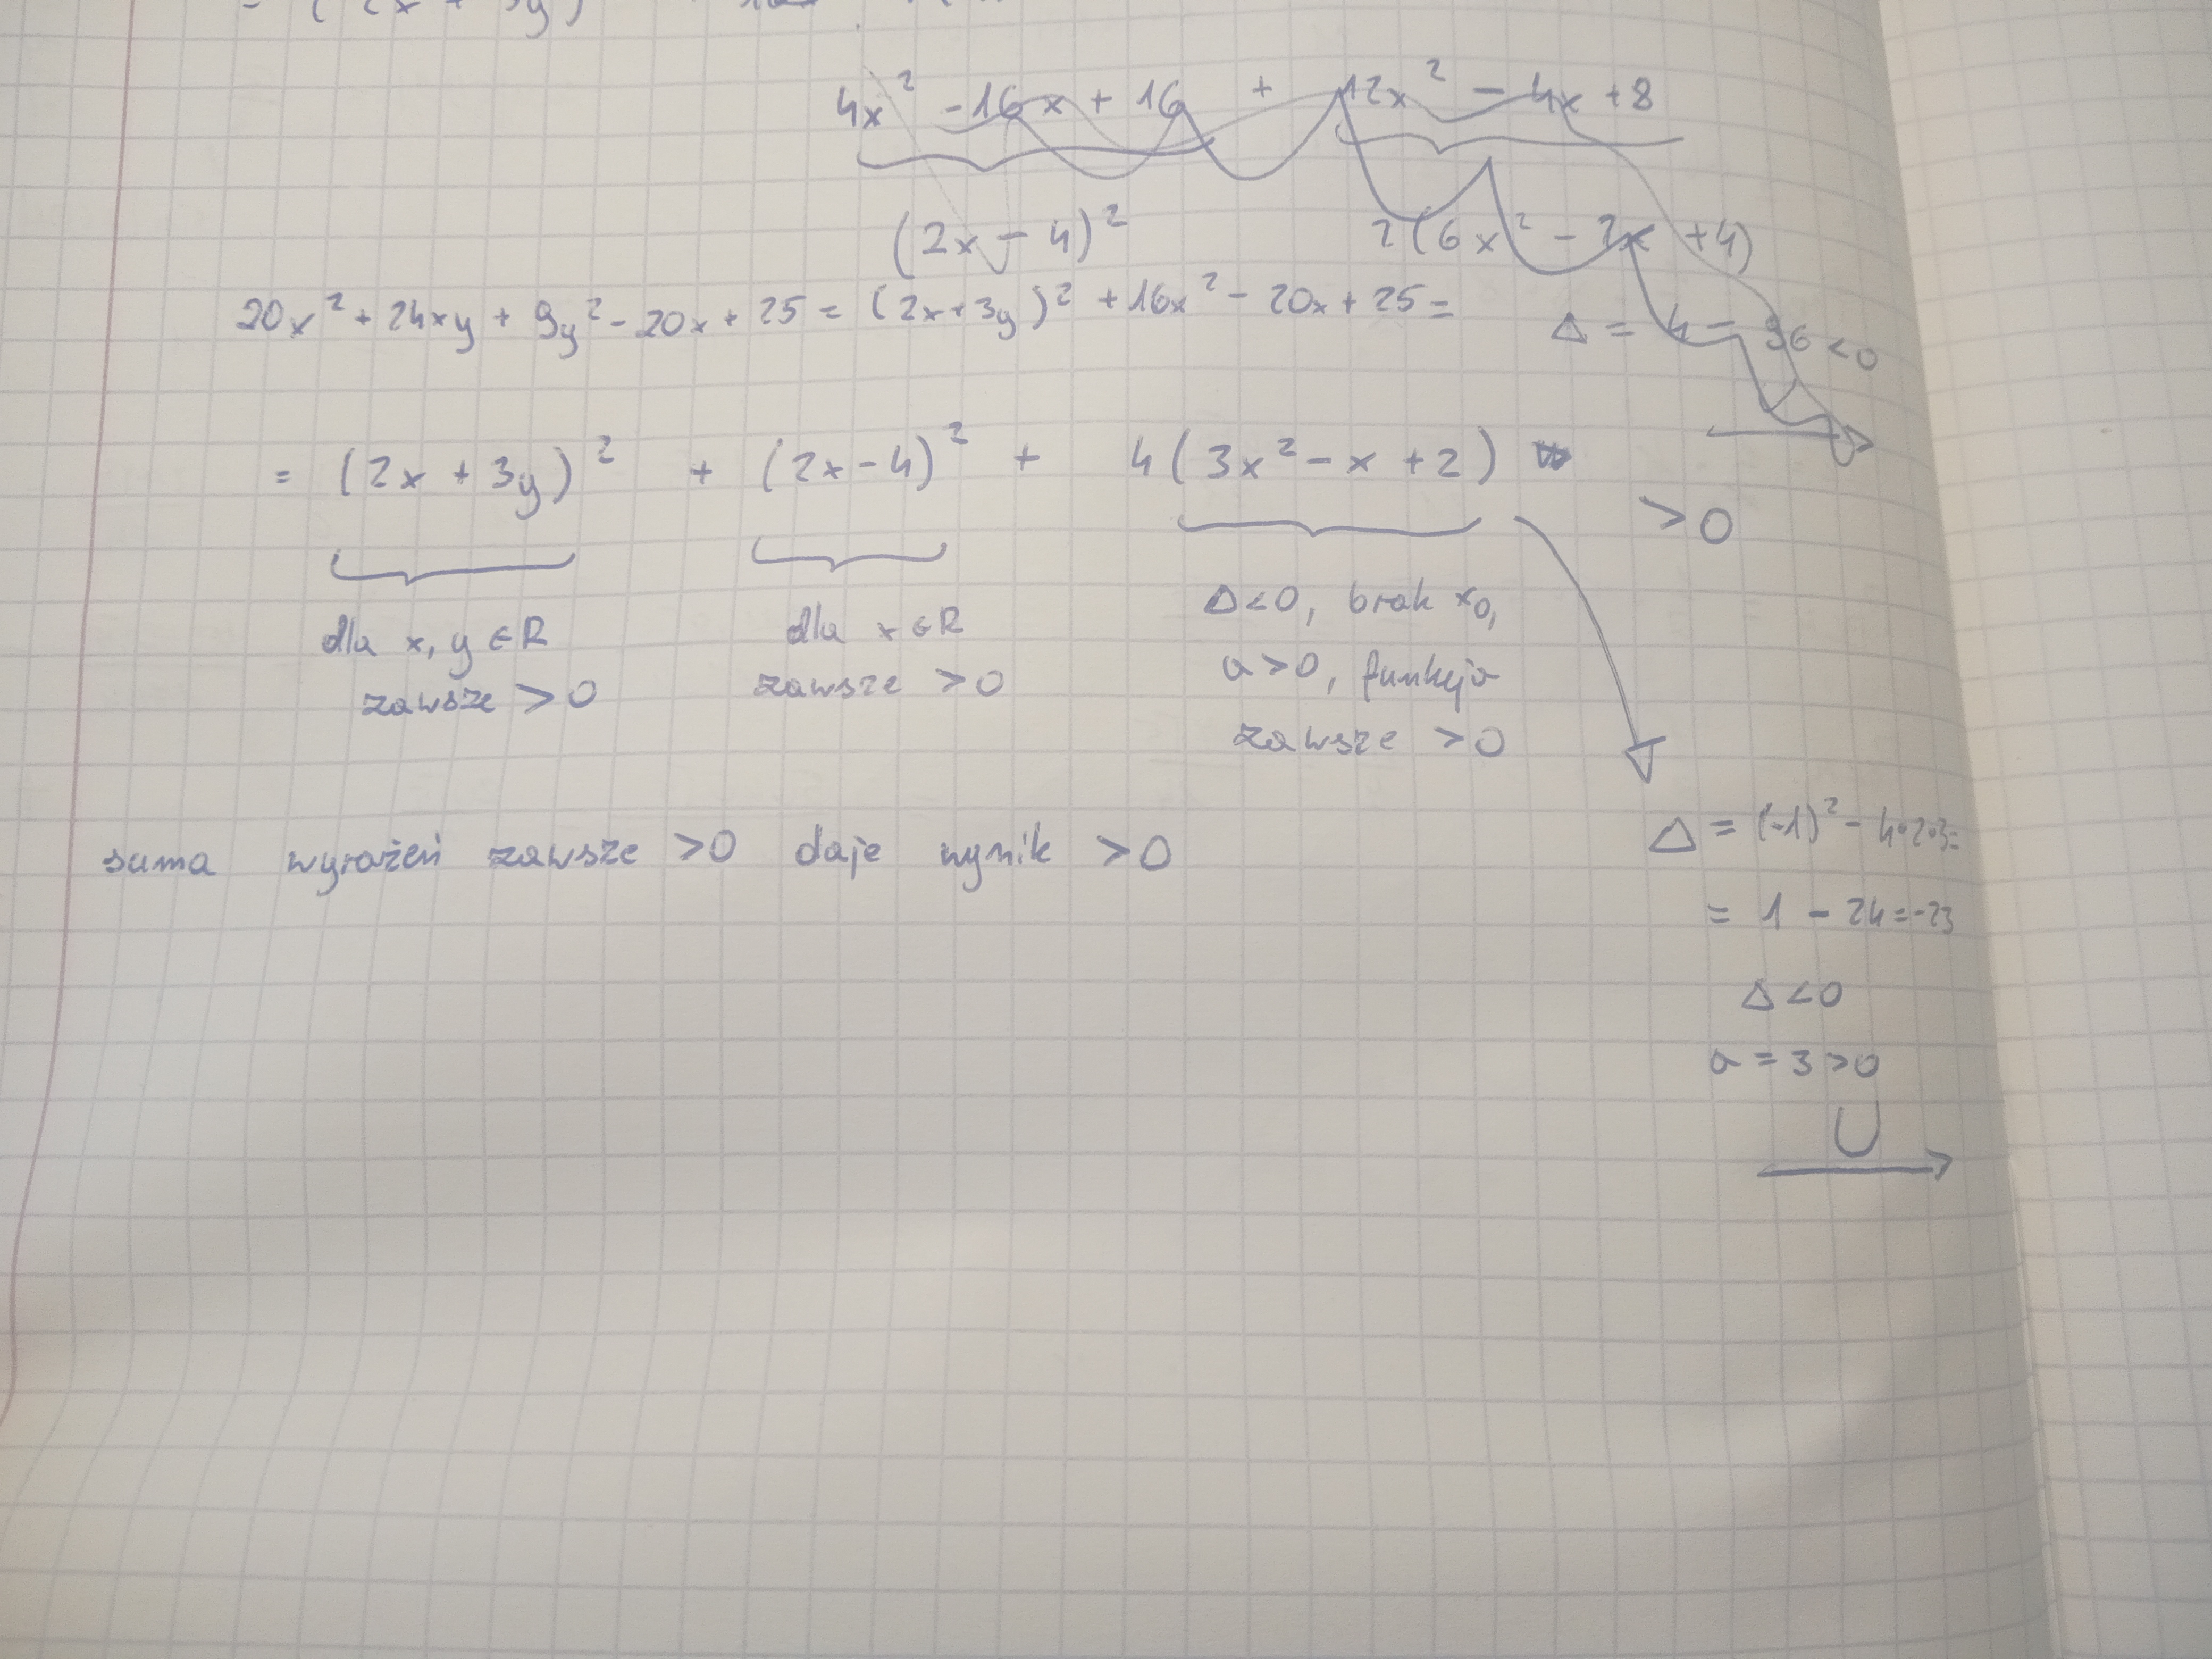 = (2x + 3y)
4x² - 16x + 16 + 12x² - 4x + 8
(2x - 4)² 2(6x² - 2x + 4)
20x² + 24xy + 9y² - 20x + 25 = (2x + 3y)² + 16x² - 20x + 25 =
Δ = 4 - 96 < 0
= (2x + 3y)² + (2x - 4)² + 4(3x² - x + 2) > 0
dla x, y ∈ R
zawsze > 0
dla x ∈ R
zawsze > 0
Δ < 0, brak x₀,
a > 0, funkcja
zawsze > 0
Δ = (-1)² - 4·2·3 =
= 1 - 24 = -23
Δ < 0
a = 3 > 0
suma wyrażeń zawsze > 0 daje wynik > 0